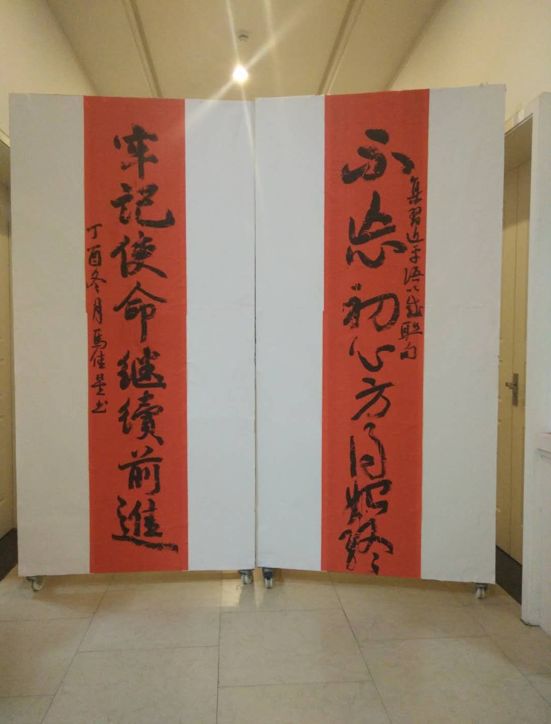 不忘初心方得始終
集習近平語以成聯句
牢記使命继續前進
丁酉冬月馬佳书